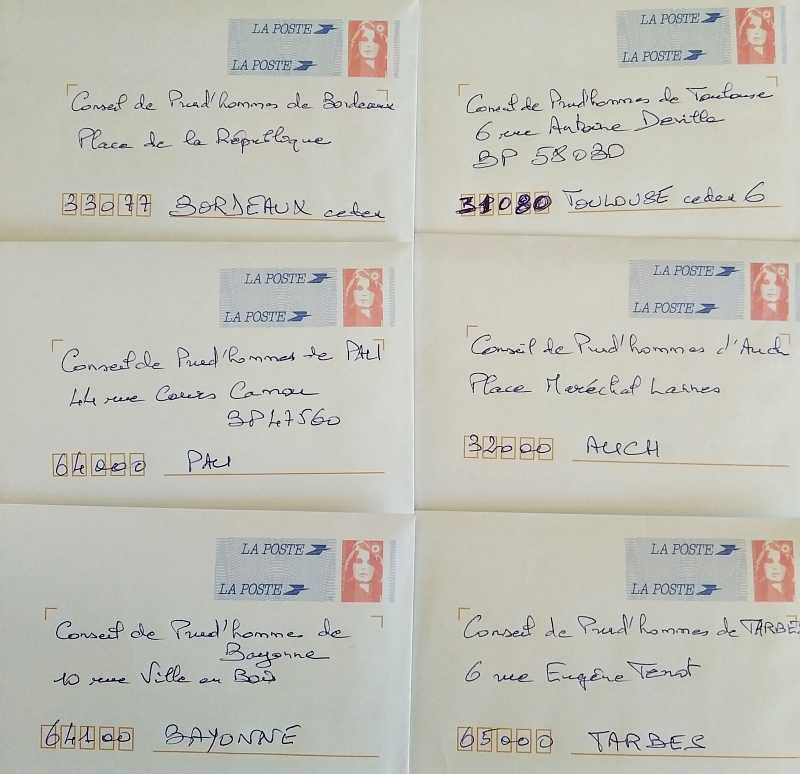 LA POSTE
LA POSTE
Conseil de Prud'hommes de Bordeaux
Place de la République
33077 BORDEAUX cedex
LA POSTE
LA POSTE
Conseil de Prud'hommes de Toulouse
6 rue Antoine Deville
BP 58030
31080 TOULOUSE cedex 6
LA POSTE
LA POSTE
Conseil de Prud'hommes de PAU
44 rue Cours Camou
BP 47560
64000 PAU
LA POSTE
LA POSTE
Conseil de Prud'hommes d'Auch
Place Maréchal Lannes
32000 AUCH
LA POSTE
LA POSTE
Conseil de Prud'hommes de
Bayonne
10 rue Ville en Bois
64100 BAYONNE
LA POSTE
LA POSTE
Conseil de Prud'hommes de TARBES
6 rue Eugène Tenot
65000 TARBES